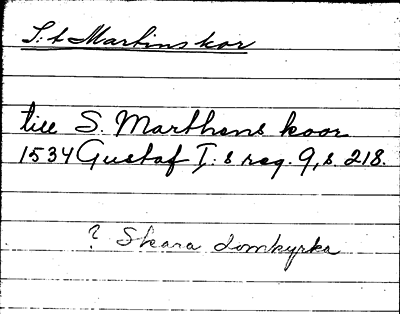 S:t Martins kor
till S. Marthens koor
1534 Gustaf I:s reg. 9, s 218.
? Skara domkyrka